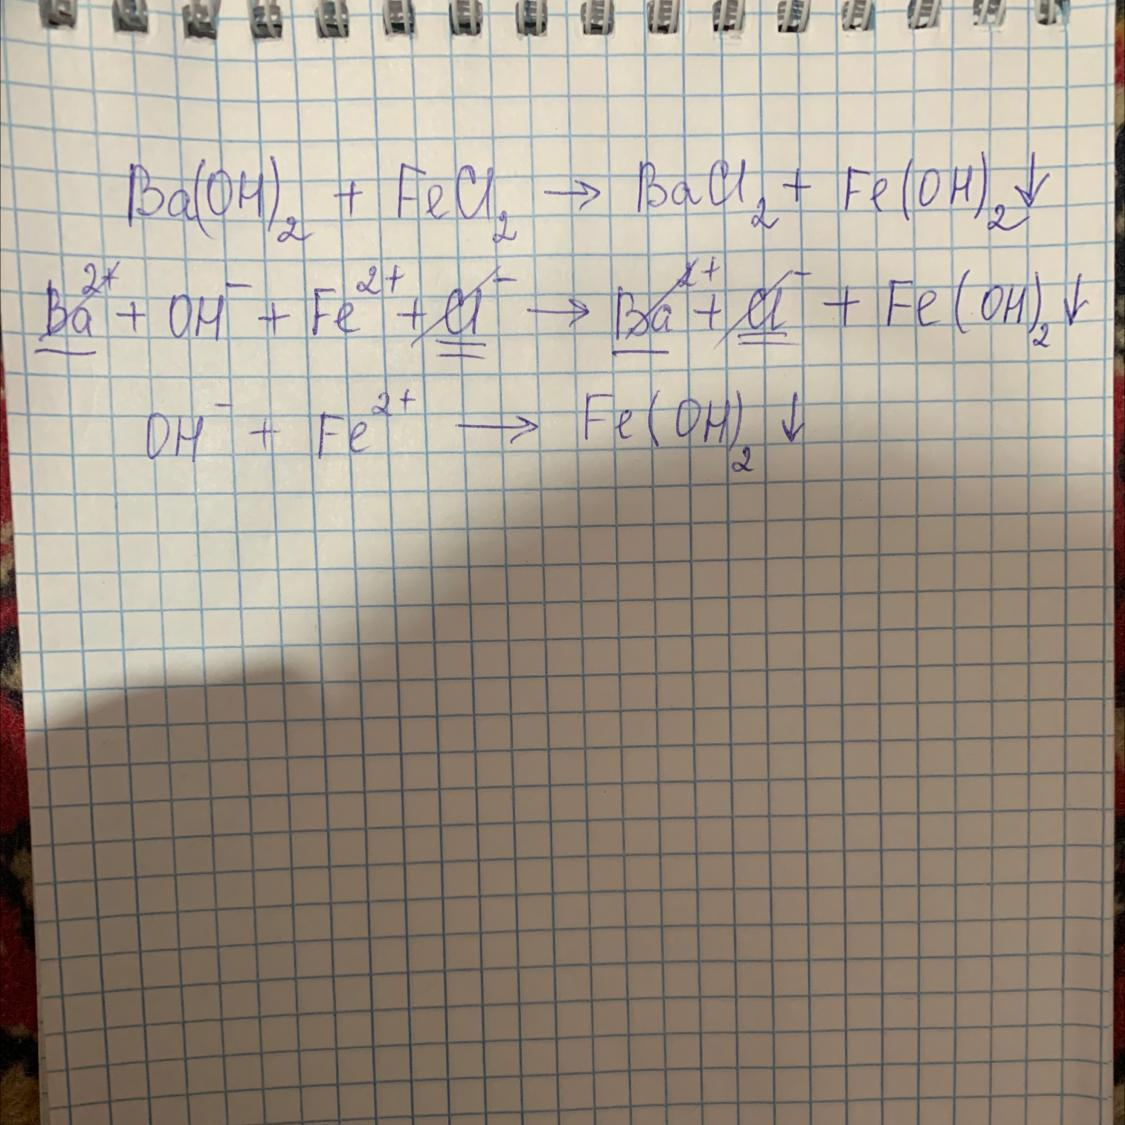 Ba(OH)₂ + FeCl₂ → BaCl₂ + Fe(OH)₂↓
Ba²⁺ + OH⁻ + Fe²⁺ + Cl⁻ → Ba²⁺ + Cl⁻ + Fe(OH)₂↓
OH⁻ + Fe²⁺ → Fe(OH)₂↓